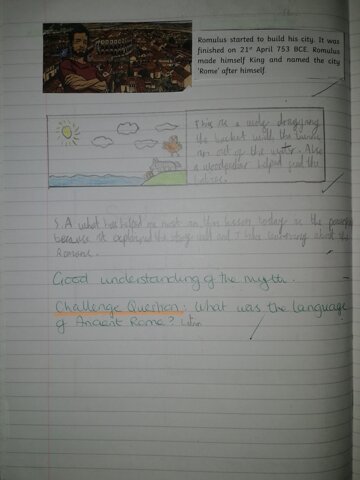 Romulus started to build his city. It was
finished on 21st April 753 BCE. Romulus
made himself King and named the city
'Rome' after himself.
This is a wolf dragging
the basket with the
out of the water. Also
a woodpecker helped feed the
S.A what has helped me most in this lesson today is the
because it explained the story well and I like learning about the
Romans.
Good understanding of the myth.
Challenge Question: What was the language
of Ancient Rome? Latin